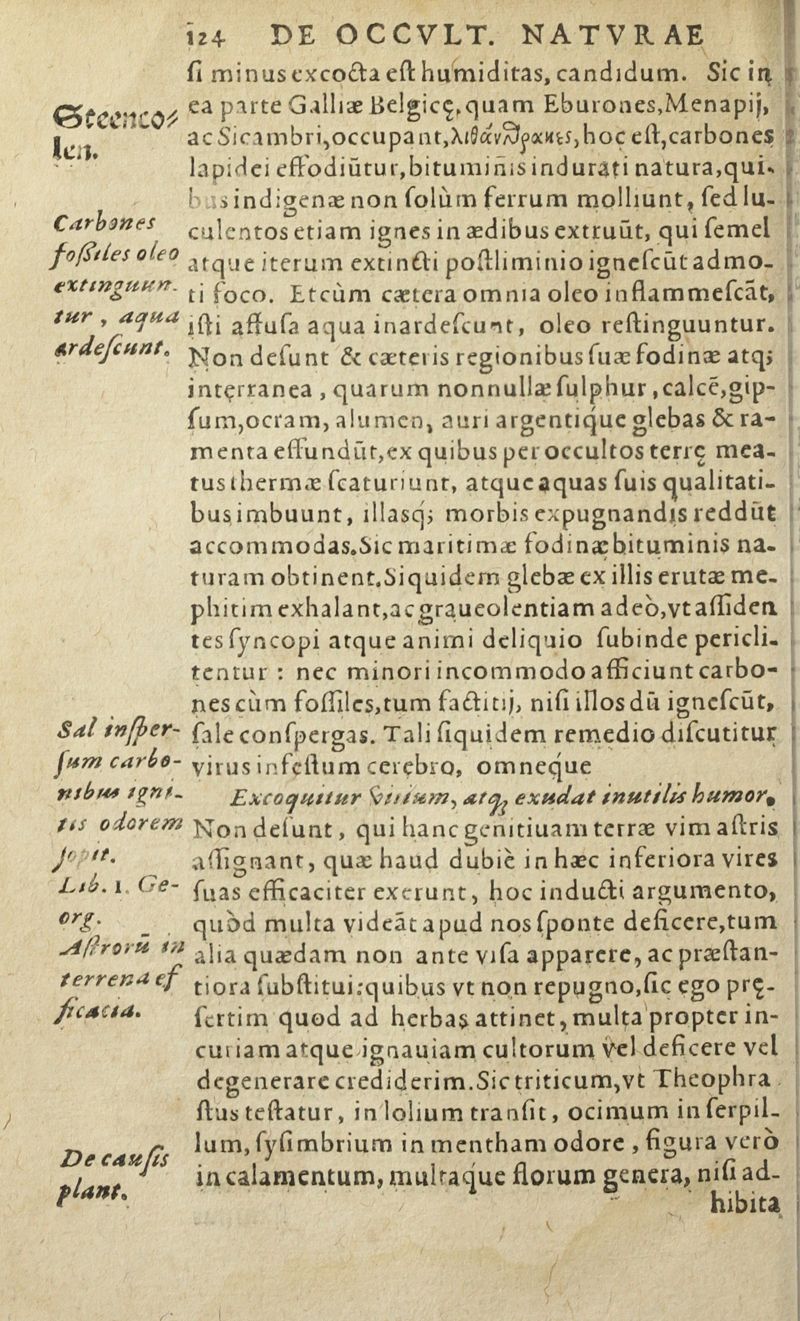 124 DE OCCVLT. NATVRAE
ſi minus excocta eſt humiditas, candidum. Sic in
ea parte Galliæ Belgicę, quam Eburones, Menapij,
ac Sicambri, occupant, λιθάνθρακες, hoc eſt, carbones
lapidei effodiūtur, bituminis indurati natura, qui-
bus indigenæ non ſolùm ferrum molliunt, ſed lu-
culentos etiam ignes in ædibus extruūt, qui ſemel
atque iterum extincti poſtliminio igneſcūt admo-
ti foco. Et cùm cætera omnia oleo inflammeſcāt,
iſti affuſa aqua inardeſcunt, oleo reſtinguuntur.
Non deſunt & cæteris regionibus ſuæ fodinæ atq;
interranea, quarum nonnullæ ſulphur, calcē, gip-
ſum, ocram, alumen, auri argentique glebas & ra-
menta effundūt, ex quibus per occultos terrę mea-
tus thermæ ſcaturiunt, atque aquas ſuis qualitati-
bus imbuunt, illasq; morbis expugnandis reddūt
accommodas. Sic maritimæ fodinæ bituminis na-
turam obtinent. Siquidem glebæ ex illis erutæ me-
phitim exhalant, ac graueolentiam adeò, vt aſſiden
tes ſyncopi atque animi deliquio ſubinde pericli-
tentur: nec minori incommodo afficiunt carbo-
nes cùm foſſiles, tum factitij, niſi illos dū igneſcūt,
ſale conſpergas. Tali ſiquidem remedio diſcutitur
virus infeſtum cerębro, omneque
Excoquitur vitium, atq; exudat inutilis humor.
Non deſunt, qui hanc genitiuam terræ vim aſtris
aſſignant, quæ haud dubiè in hæc inferiora vires
ſuas efficaciter exerunt, hoc inducti argumento,
quòd multa videāt apud nos ſponte deficere, tum
alia quædam non ante viſa apparere, ac præſtan-
tiora ſubſtitui: quibus vt non repugno, ſic ego prę-
ſertim quod ad herbas attinet, multa propter in-
curiam atque ignauiam cultorum vel deficere vel
degenerare crediderim. Sic triticum, vt Theophra
ſtus teſtatur, in lolium tranſit, ocimum in ſerpil-
lum, ſyſimbrium in mentham odore, figura verò
in calamentum, multaque florum genera, niſi ad-
hibita
Steencoʒ
len.
Carbones
foſſiles oleo
extinguun-
tur, aqua
ardeſcunt.
Sal inſper-
ſum carbo-
nibus igni-
tis odorem
ſopit.
Lib. 1. Ge-
org.
Aſtrorū in
terrena ef
ficacia.
De cauſis
plant.